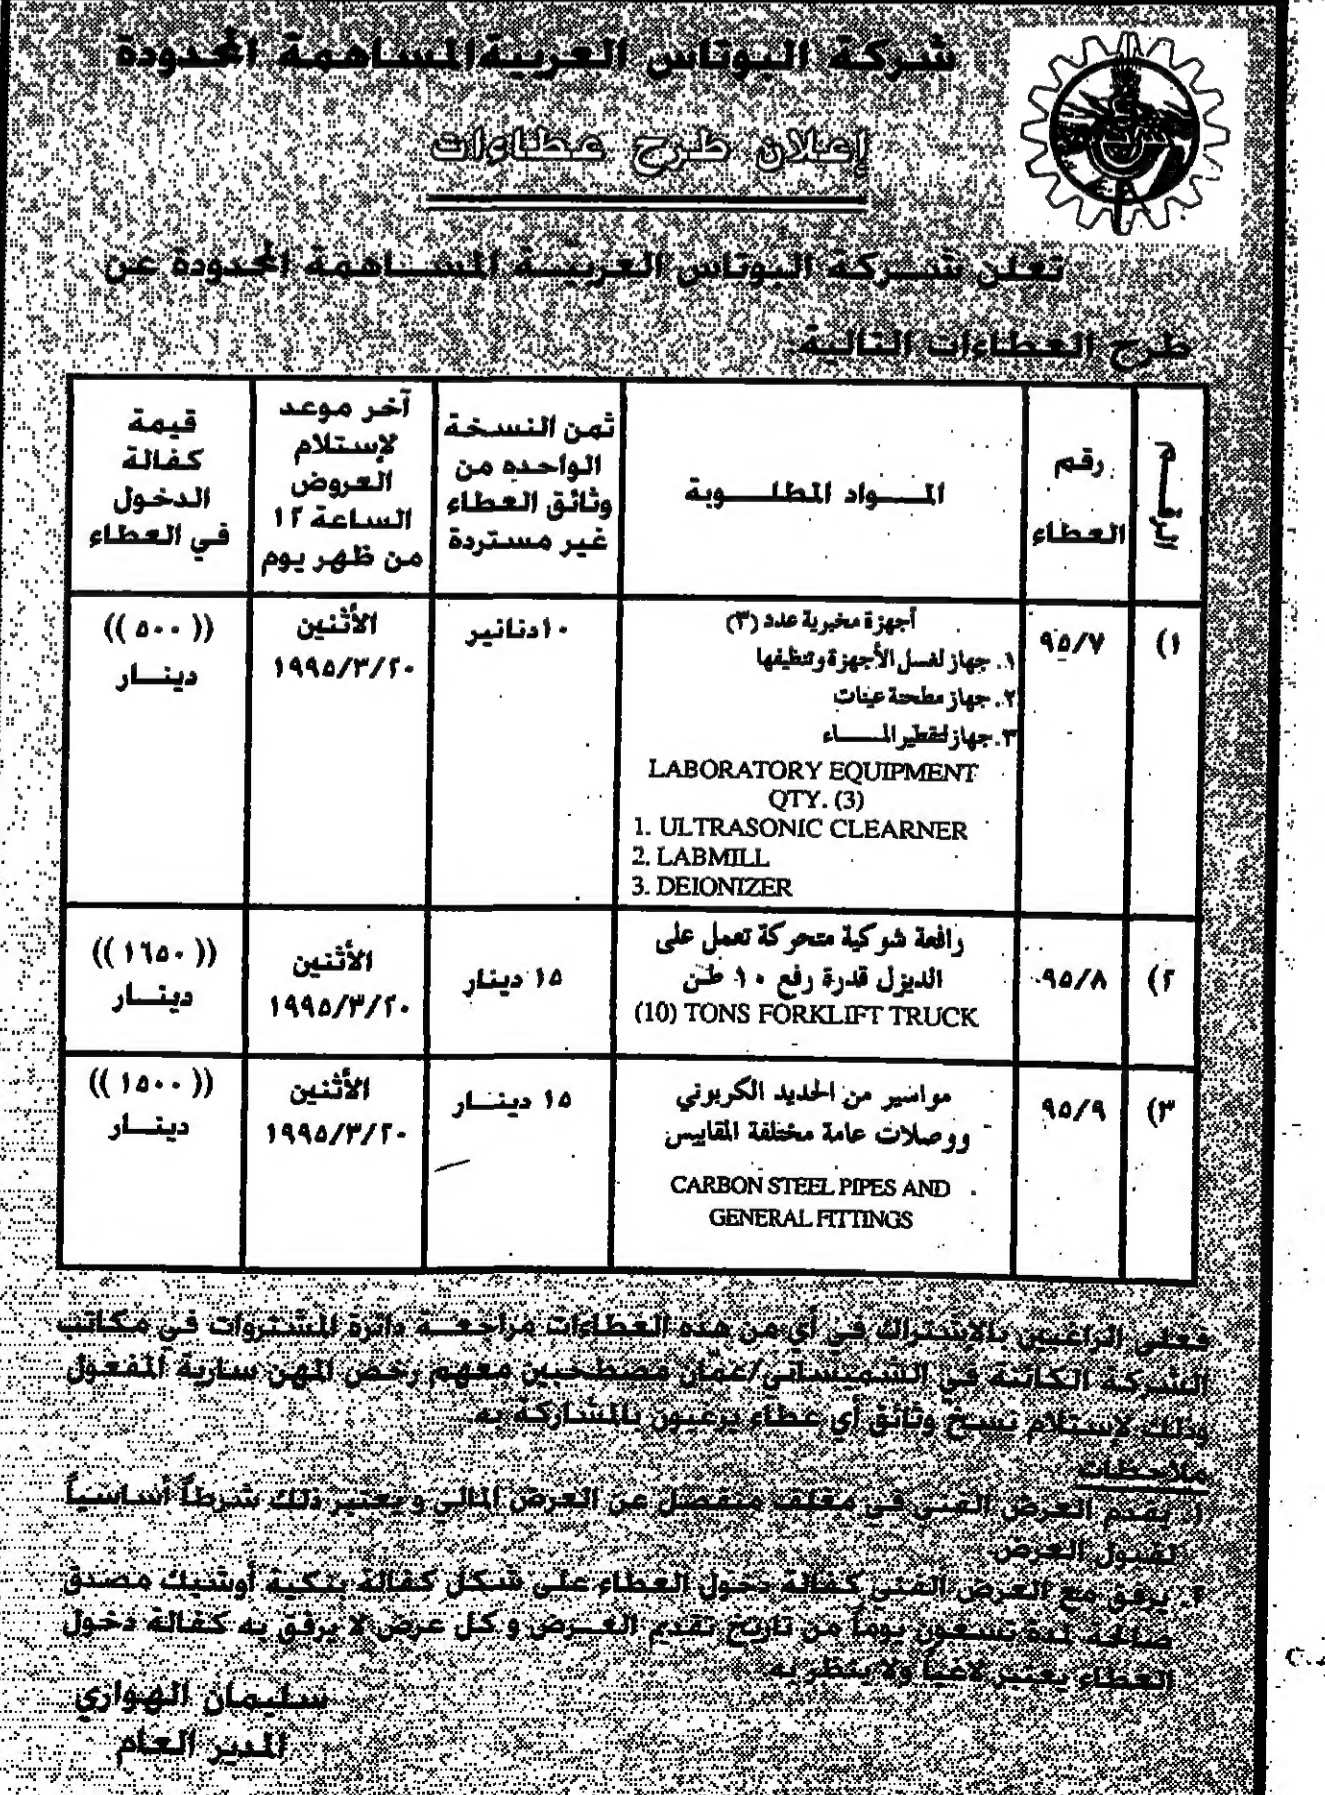 شركة البوتاس العربية المساهمة المحدودة
إعلان طرح عطاءات
تعلن شركة البوتاس العربية المساهمة المحدودة عن
طرح العطاءات التالية
الرقم
رقم
العطاء
المواد المطلوبة
ثمن النسخة
الواحده من
وثائق العطاء
غير مستردة
آخر موعد
لإستلام
العروض
الساعة ١٢
من ظهر يوم
قيمة
كفالة
الدخول
في العطاء
١)
٩٥/٧
أجهزة مخبرية عدد (٣)
١. جهاز لغسل الأجهزة وتنظيفها
٢. جهاز مطحنة عينات
٣. جهاز لتقطير الماء
LABORATORY EQUIPMENT
QTY. (3)
1. ULTRASONIC CLEARNER
2. LABMILL
3. DEIONIZER
١٠ دنانير
الأثنين
١٩٩٥/٣/٢٠
(( ٥٠٠ ))
دينار
٢)
٩٥/٨
رافعة شوكية متحركة تعمل على
الديزل قدرة رفع ١٠ طن
(10) TONS FORKLIFT TRUCK
١٥ دينار
الأثنين
١٩٩٥/٣/٢٠
(( ١٦٥٠ ))
دينار
٣)
٩٥/٩
مواسير من الحديد الكربوني
ووصلات عامة مختلفة المقاييس
CARBON STEEL PIPES AND
GENERAL FITTINGS
١٥ دينار
الأثنين
١٩٩٥/٣/٢٠
(( ١٥٠٠ ))
دينار
فعلى الراغبين بالاشتراك في أي من هذه العطاءات مراجعة دائرة المشتروات في مكاتب
الشركة الكائنة في الشميساني/عمان مصطحبين معهم رخص المهن سارية المفعول
وذلك لإستلام نسخ وثائق أي عطاء يرغبون بالمشاركة به.
ملاحظات
١. يقدم العرض الفني في مغلف منفصل عن العرض المالي ويعتبر ذلك شرطاً أساسياً
لقبول العرض
٢. يرفق مع العرض الفني كفالة دخول العطاء على شكل كفالة بنكية أوشيك مصدق
صالحة لمدة تسعون يوماً من تاريخ تقديم العرض وكل عرض لا يرفق به كفالة دخول
العطاء يعتبر لاغياً ولا ينظر به
سليمان الهواري
المدير العام